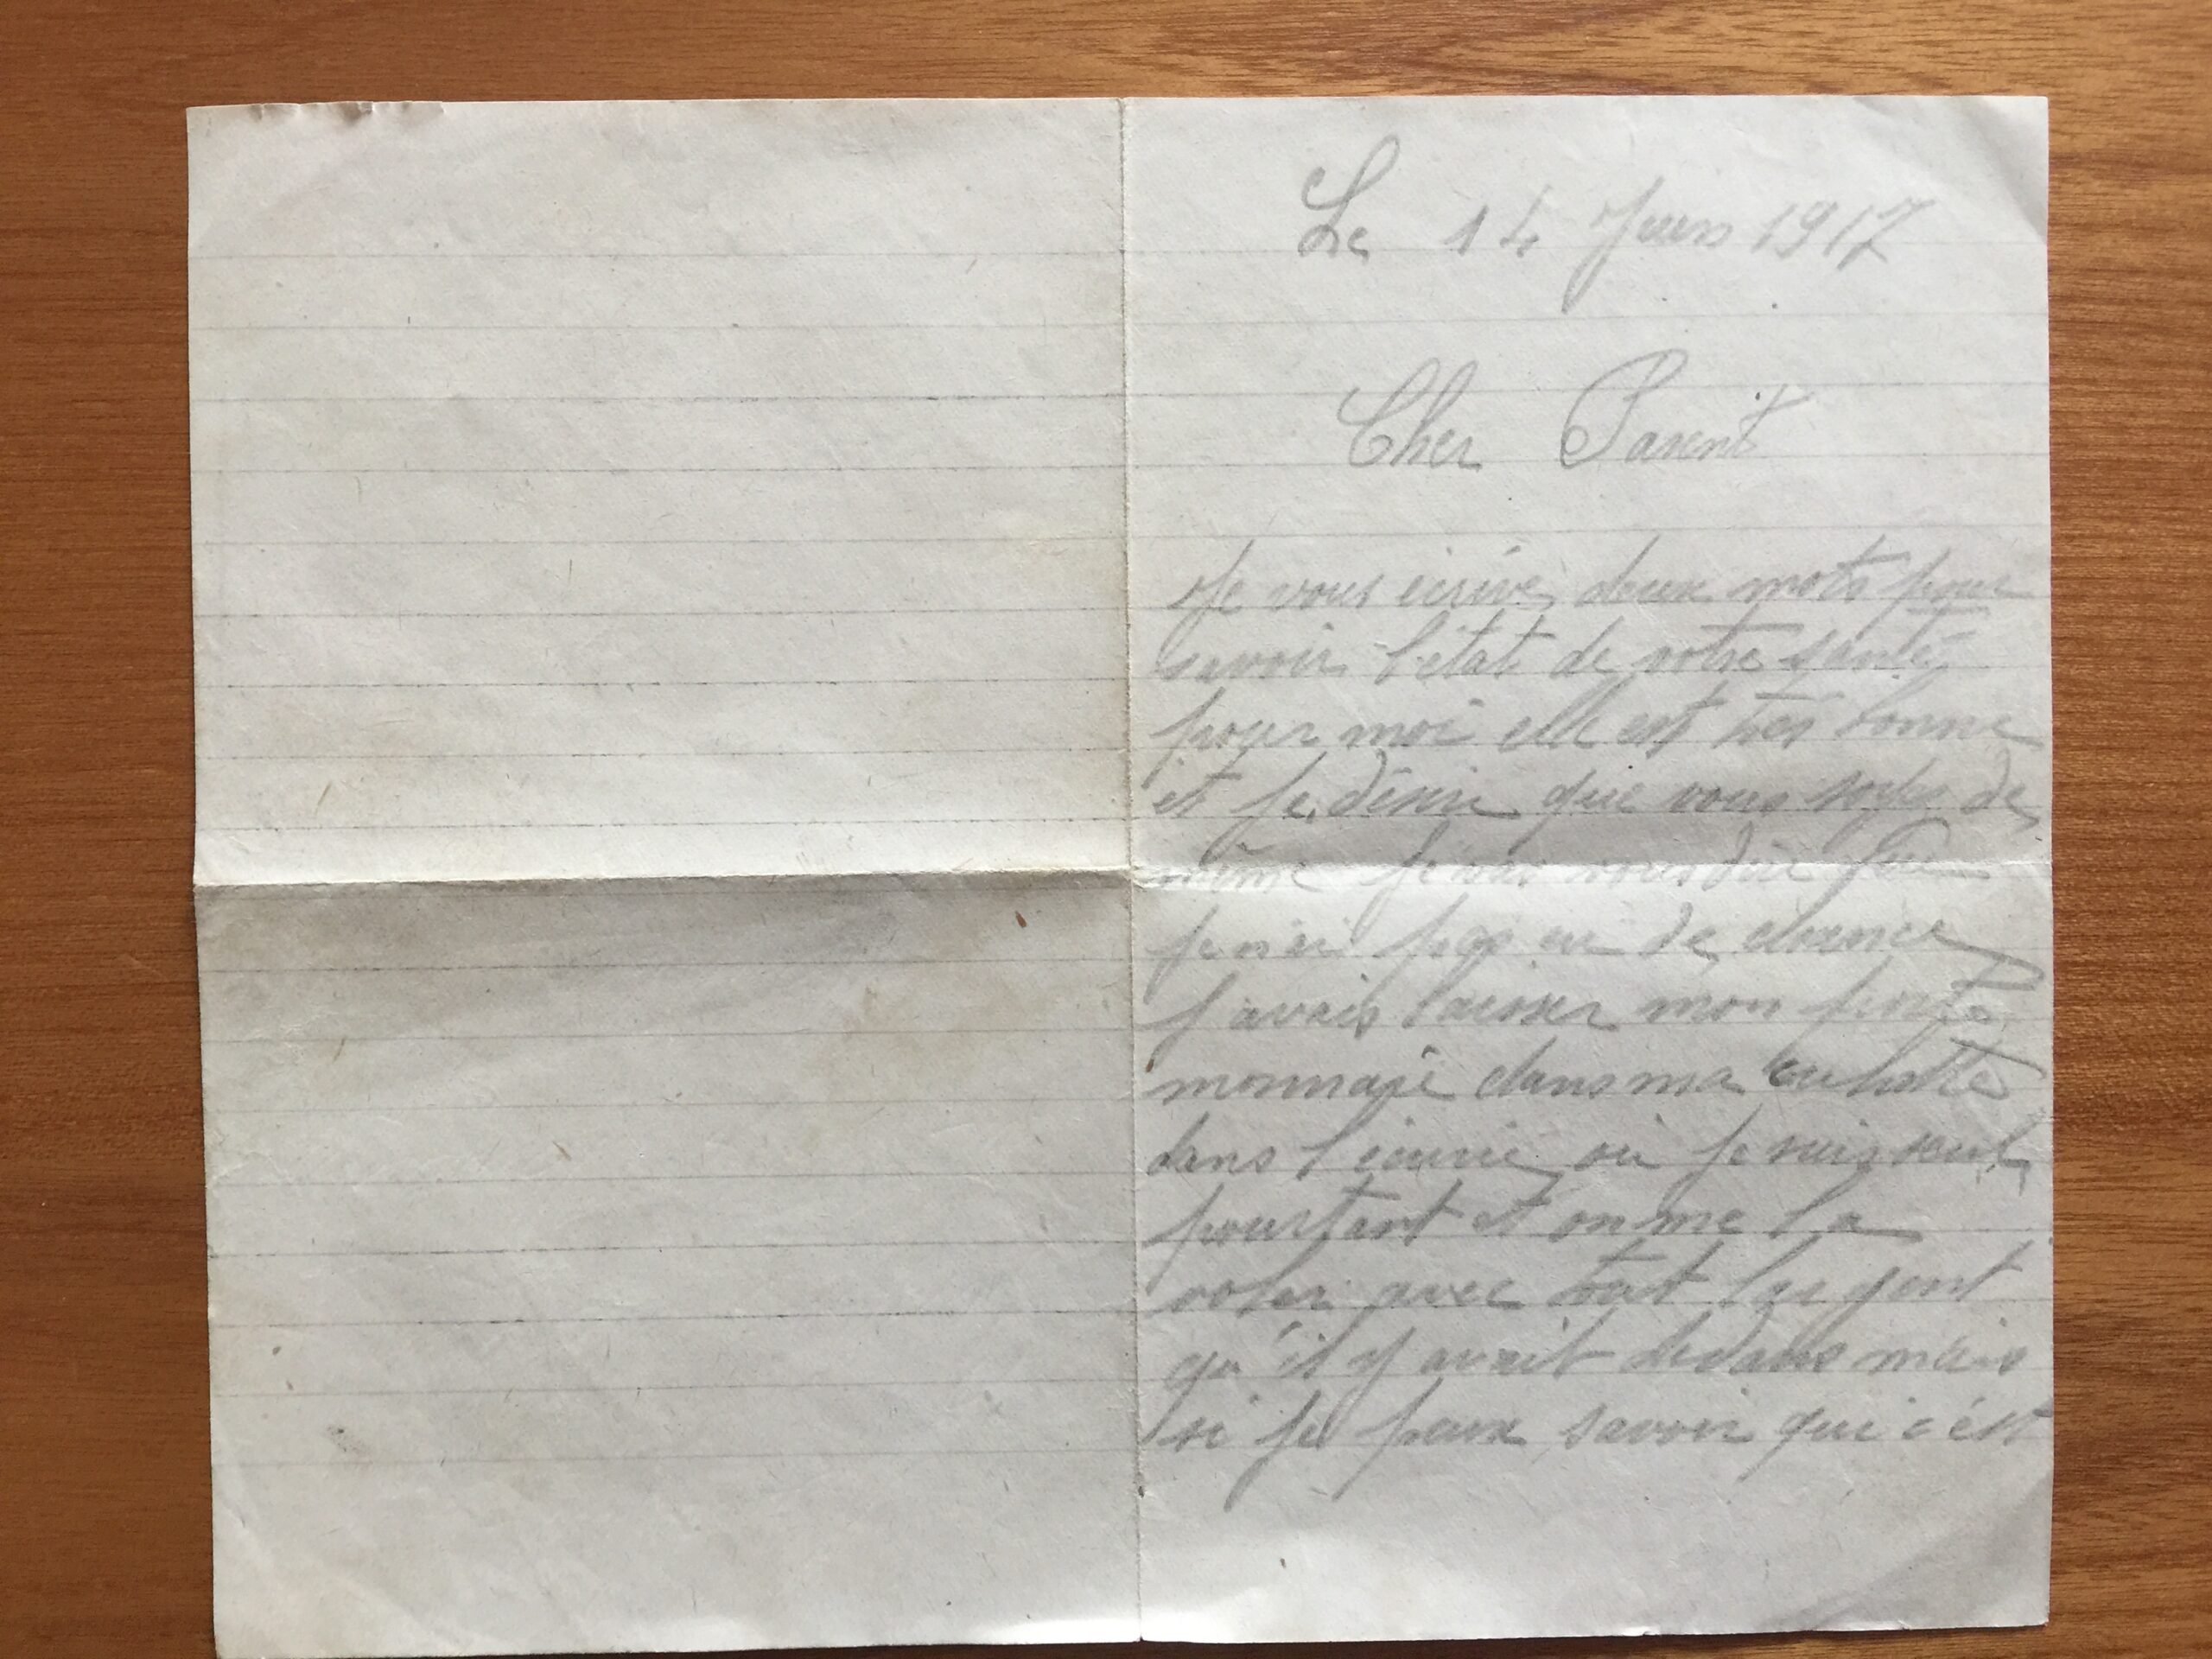 Le 14 Juin 1917
Cher Parent
Je vous écrive deux mots pour
savoir l'état de votre santé
pour moi elle est très bonne
et je désire que vous soiez de
même je vais vous dire que
je n'ai pas eu de chance
j'avais laisser mon porte
monnaie dans ma culotte
dans l'écurie où je suis seul
pourtant et on me l a
voler avec tout l'argent
qu'il y avait dedans mais
si je peux savoir qui c'est